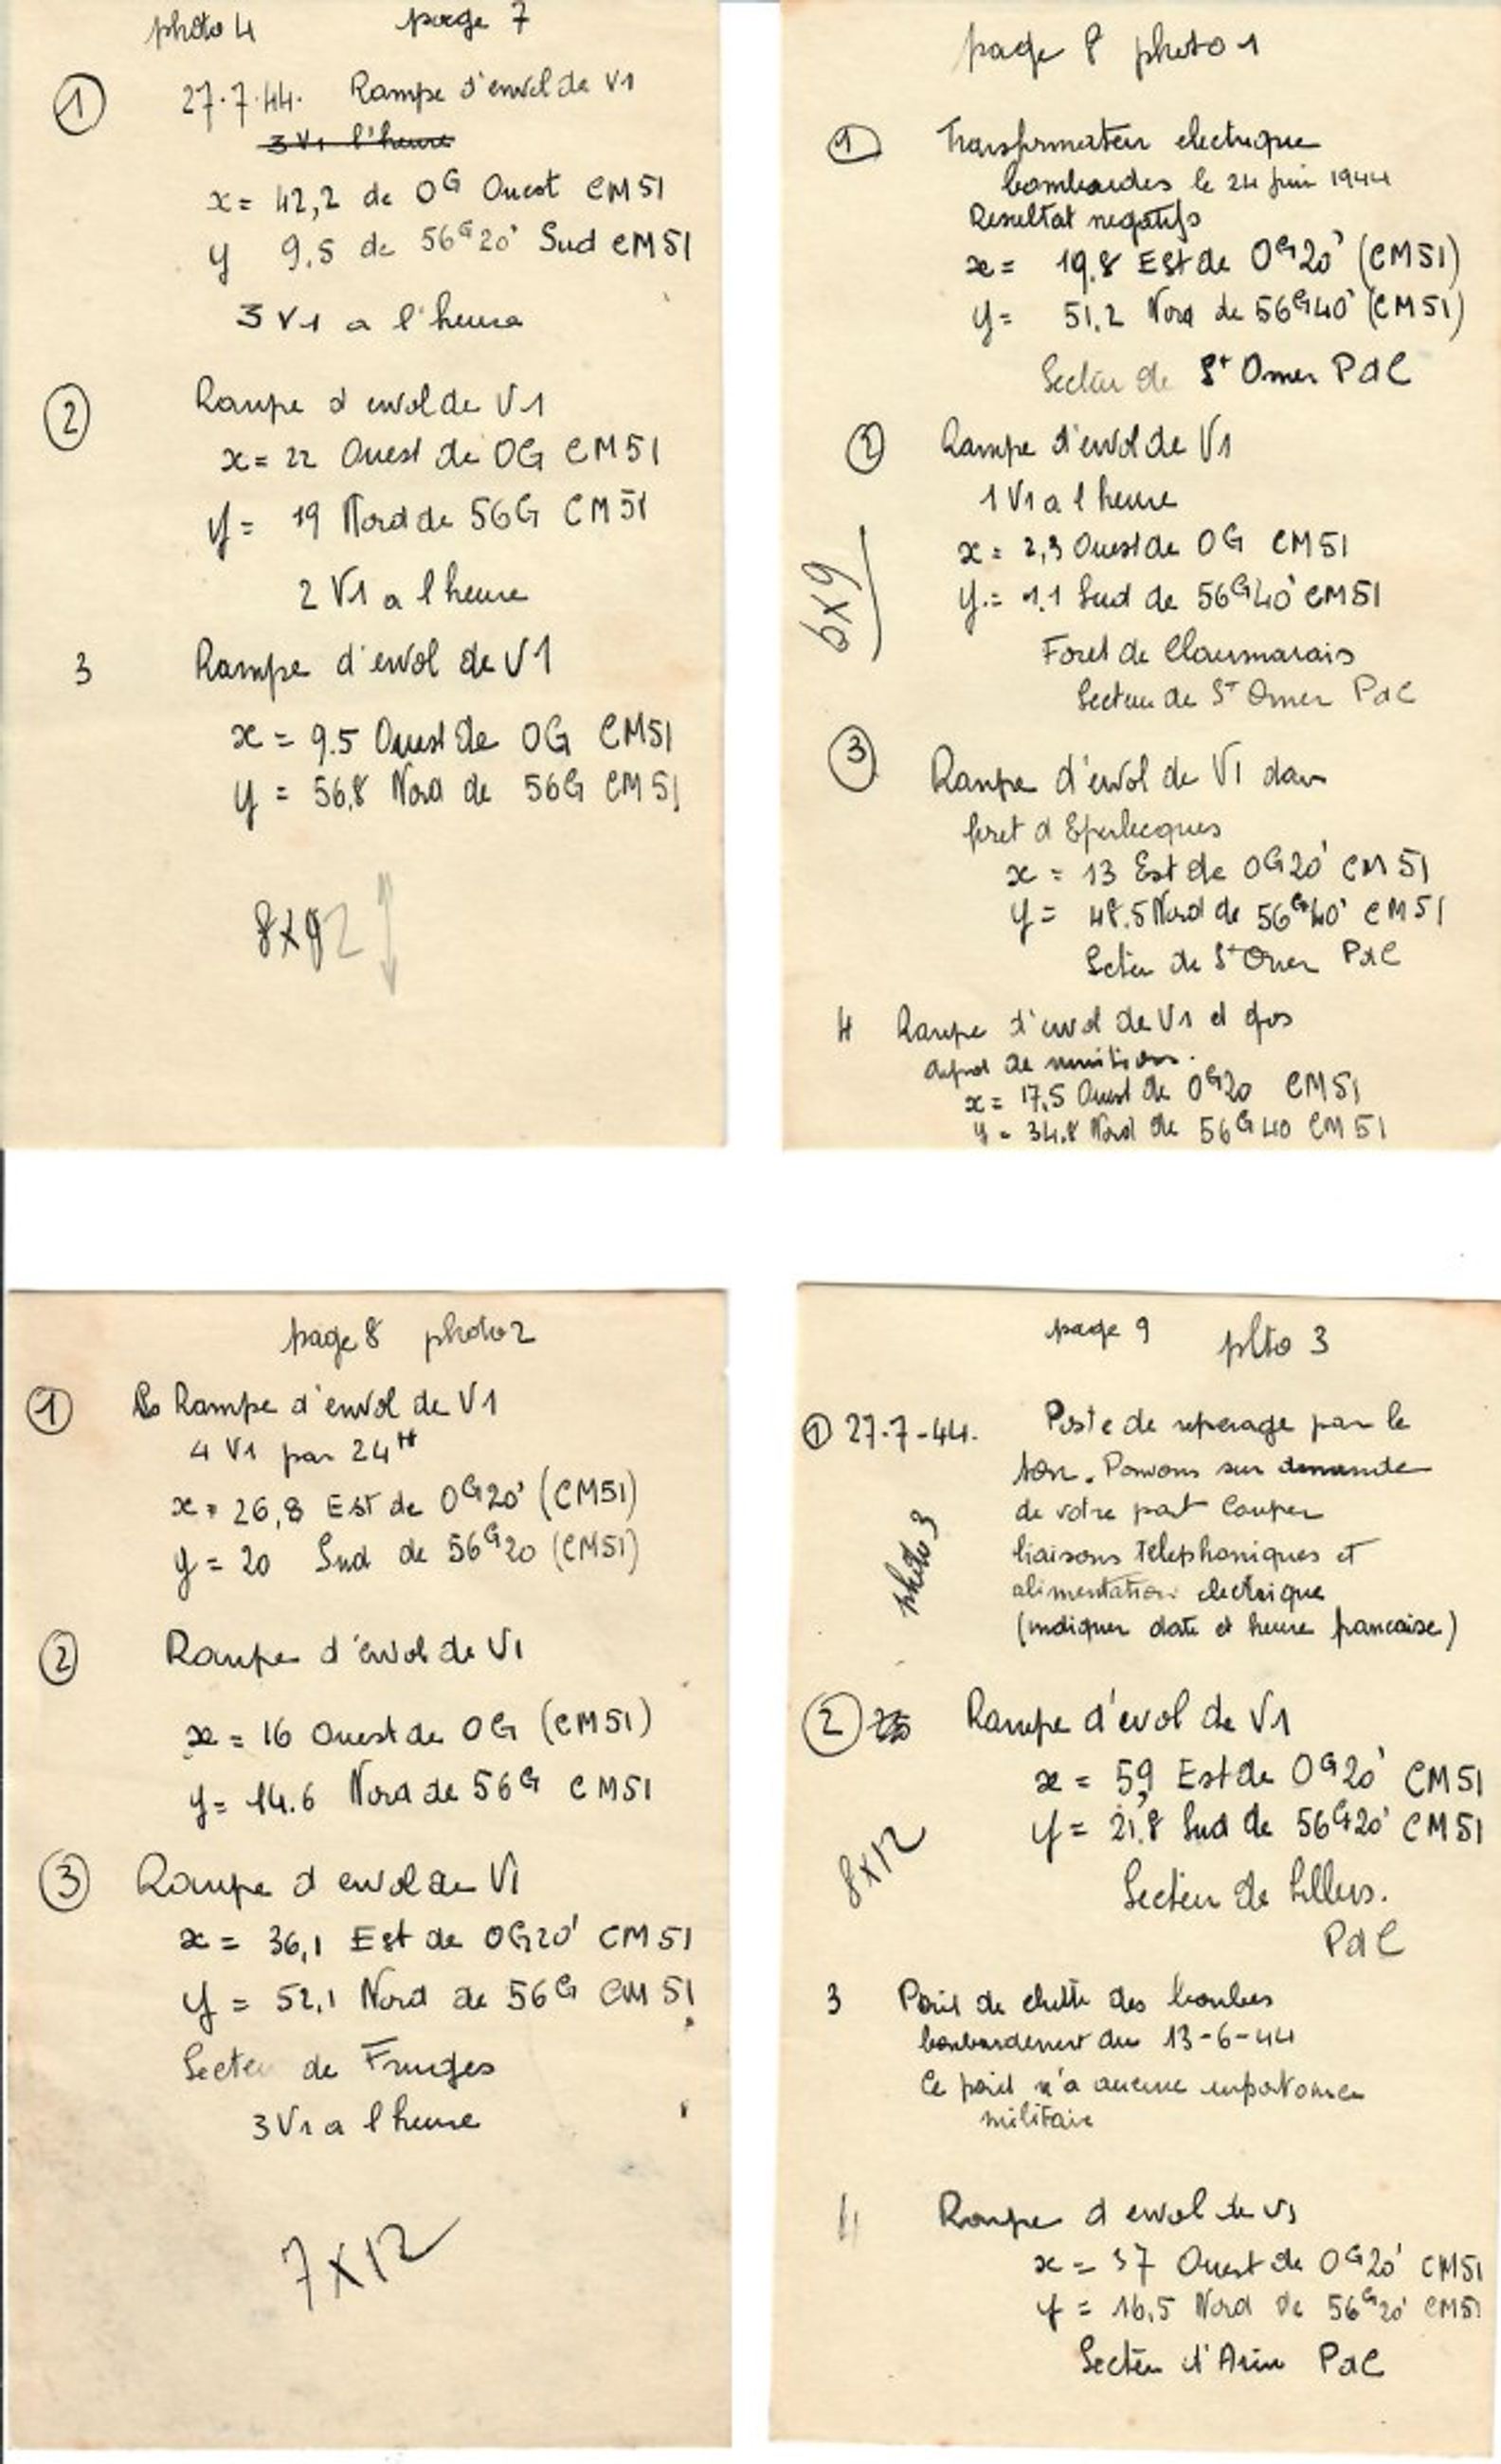 photo 4 page 7
① 27.7.44. Rampe d'envol de V1
3 V1 l'heure
x = 42,2 de 0G Ouest CM51
y 9.5 de 56G20' Sud CM51
3 V1 a l'heure
② Rampe d envol de V1
x = 22 Ouest de 0G CM51
y = 19 Nord de 56G CM51
2 V1 a l heure
3 Rampe d'envol de V1
x = 9.5 Ouest de 0G CM51
y = 56,8 Nord de 56G CM51
page 8 photo 1
① Transformateur electrique
bombardes le 24 juin 1944
Resultat negatifs
x = 19.8 Est de 0G20' (CM51)
y = 51.2 Nord de 56G40' (CM51)
Secteur de St Omer PdC
② Rampe d'envol de V1
1 V1 a l heure
x = 2,3 Ouest de 0G CM51
y = 1.1 Sud de 56G40' CM51
6x9
Foret de Clairmarais
Secteur de St Omer PdC
③ Rampe d'envol de V1 dans
foret d Eperlecques
x = 13 Est de 0G20' CM51
y = 48.5 Nord de 56G40' CM51
Secteur de St Omer PdC
4 Rampe d'envol de V1 et gros
depot de munitions.
x = 17,5 Ouest de 0G20 CM51
y = 34,8 Nord de 56G40 CM51
page 8 photo 2
① Rampe d'envol de V1
4 V1 par 24H
x = 26,8 Est de 0G20' (CM51)
y = 20 Sud de 56G20 (CM51)
② Rampe d'envol de V1
x = 16 Ouest de 0G (CM51)
y = 14.6 Nord de 56G CM51
③ Rampe d envol de V1
x = 36,1 Est de 0G20' CM51
y = 52,1 Nord de 56G CM51
Secteur de Fruges
3 V1 a l heure
7x12
page 9 photo 3
① 27-7-44. Poste de reperage par le
son. Pouvons sur demande
de votre part couper
liaisons telephoniques et
alimentation electrique
(indiquer date et heure francaise)
photo 3
② Rampe d'evol de V1
x = 59 Est de 0G20' CM51
y = 21.8 Sud de 56G20' CM51
8x12
Secteur de Lillers.
PdC
3 Point de chutte des bombes
bombardement du 13-6-44
Ce point n'a aucune importance
militaire
4 Rampe d envol de V1
x = 37 Ouest de 0G20' CM51
y = 16,5 Nord de 56G20' CM51
Secteur d'Aire PdC